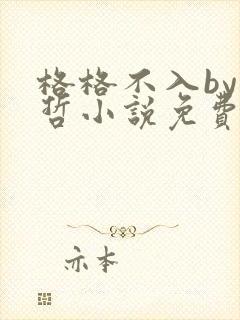 格格不入by
哲小說免費
亦本